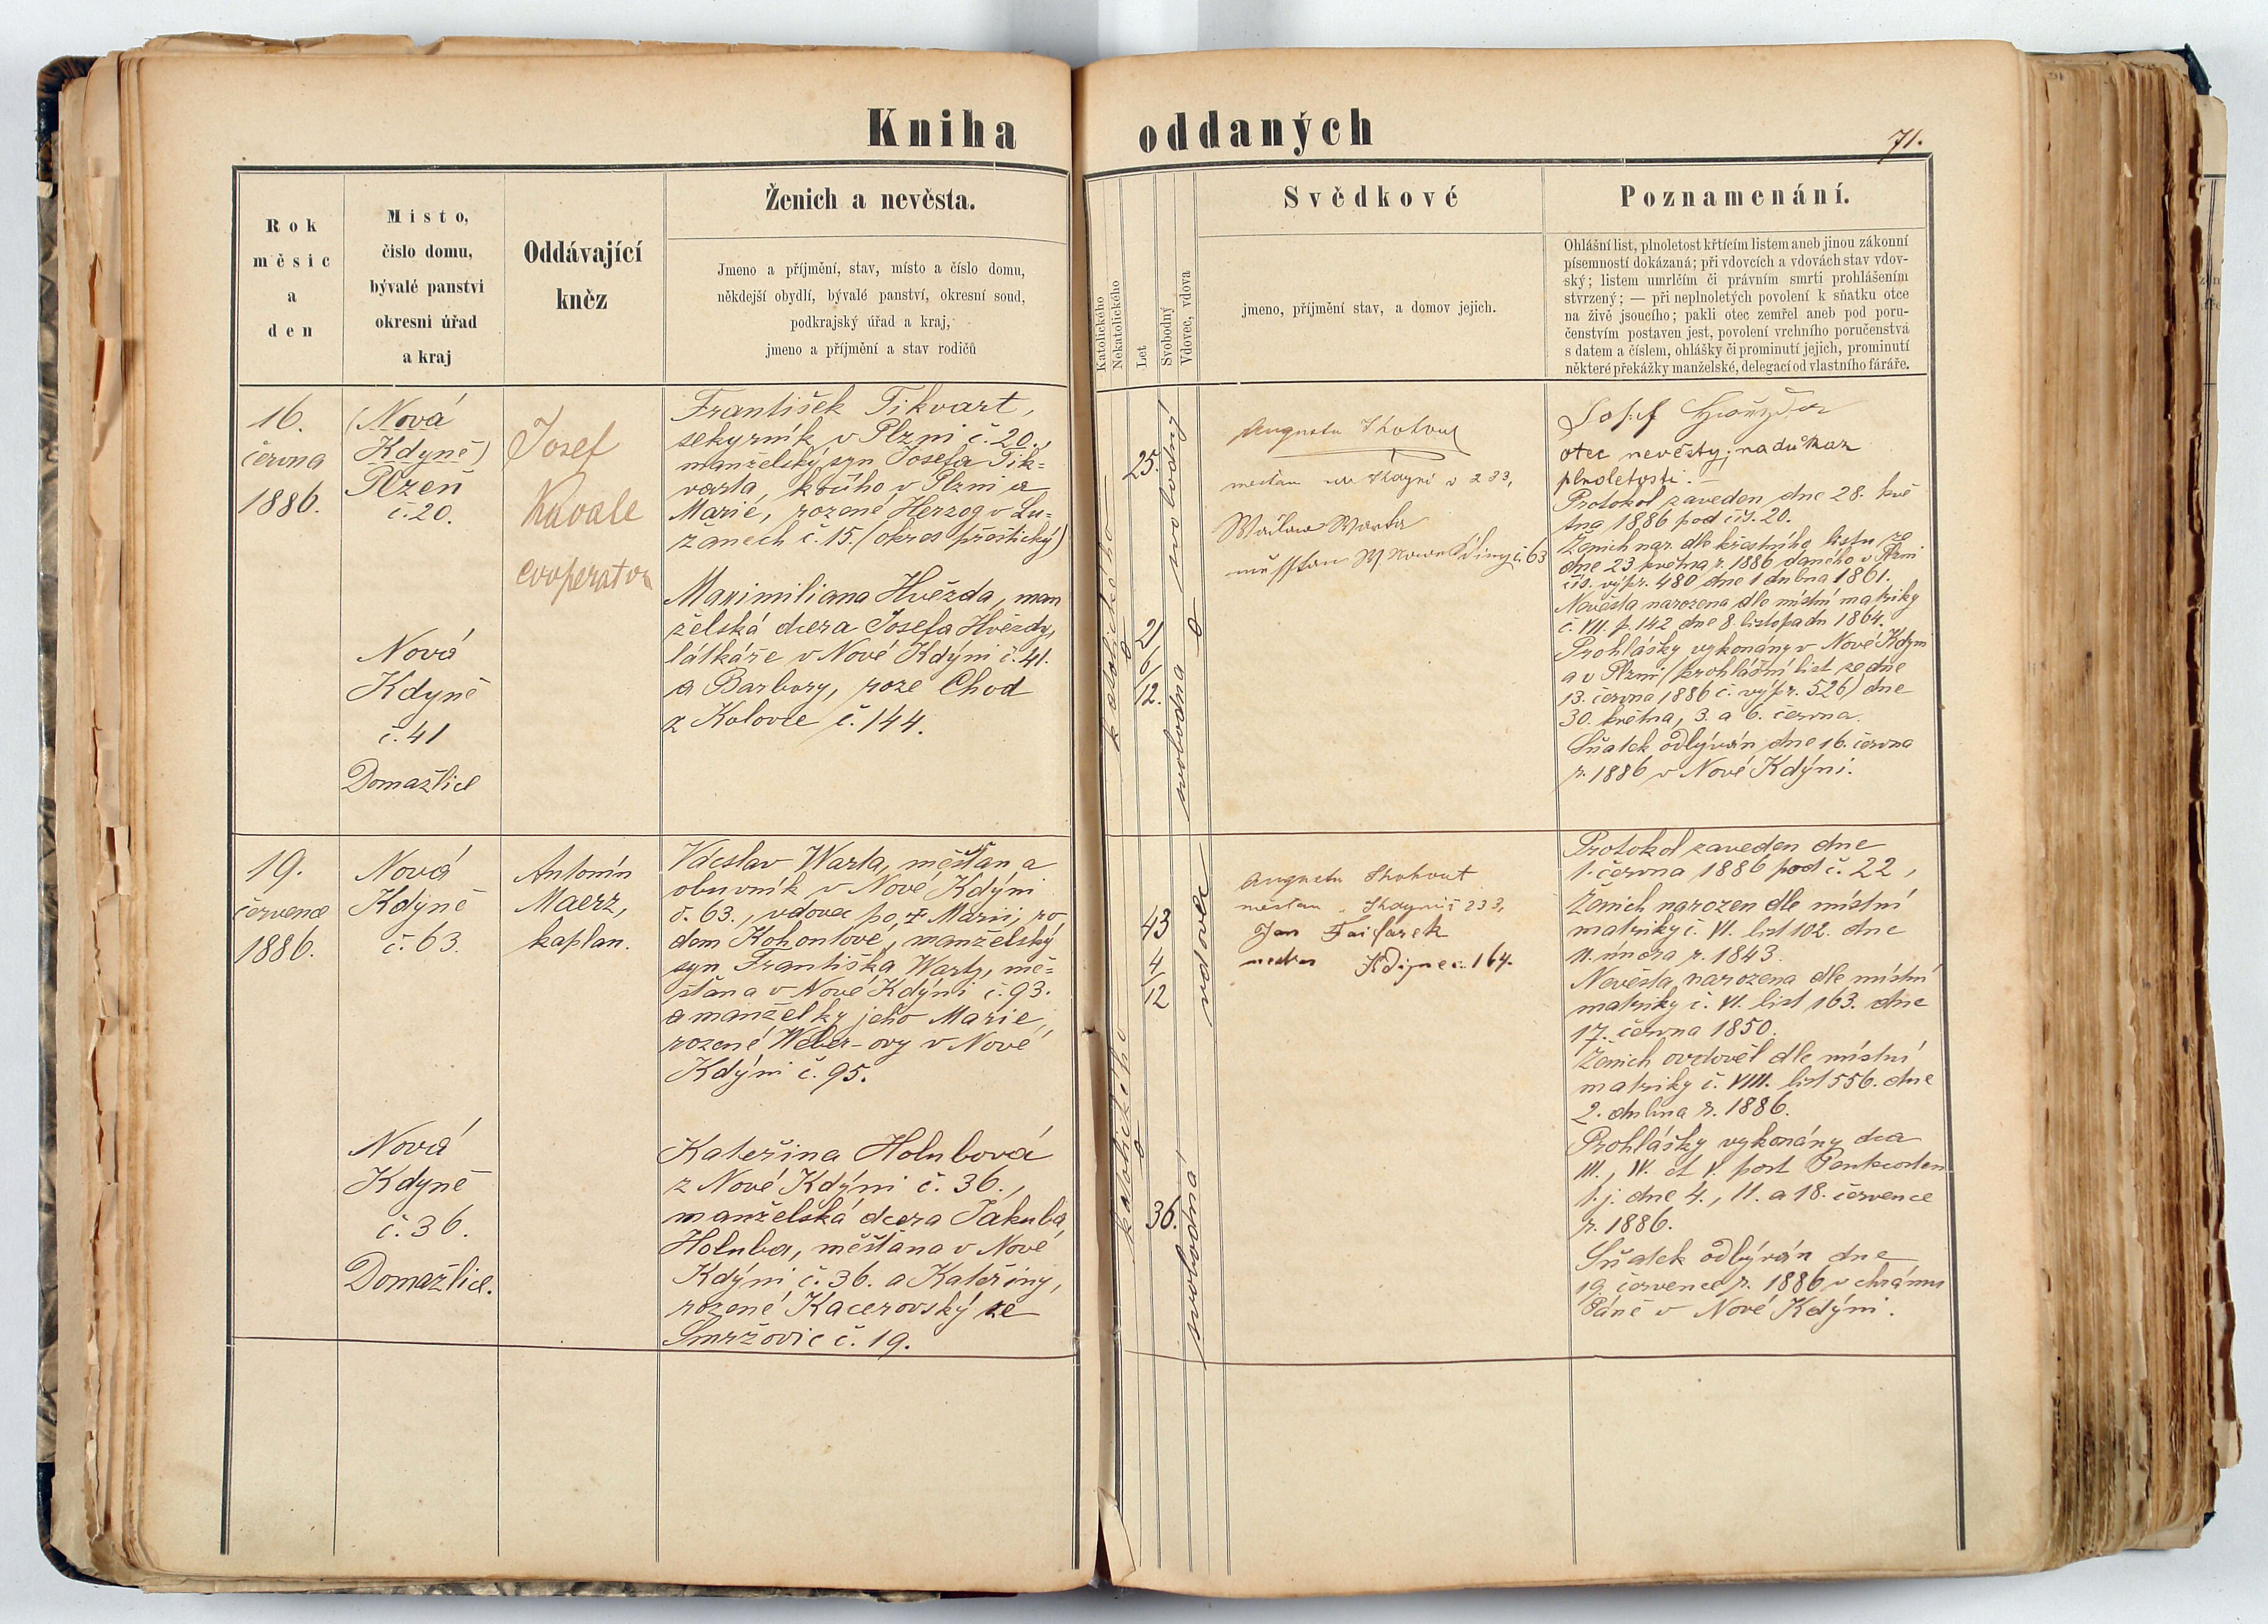 Kniha oddaných
71.
Rok
měsíc
a
den
Místo,
číslo domu,
bývalé panství
okresní úřad
a kraj
Oddávající
kněz
Ženich a nevěsta.
Jmeno a příjmění, stav, místo a číslo domu,
někdejší obydlí, bývalé panství, okresní soud,
podkrajský úřad a kraj,
jmeno a příjmění a stav rodičů
Katolického
Nekatolického
Let
Svobodný
Vdovec, vdova
Svědkové
jmeno, příjmění stav, a domov jejich.
Poznamenání.
Ohlášní list, plnoletost křtícím listem aneb jinou zákonní
písemností dokázaná; při vdovcích a vdovách stav vdov-
ský; listem umrlčím či právním smrti prohlášením
stvrzený; — při neplnoletých povolení k sňatku otce
na živě jsoucího; pakli otec zemřel aneb pod poru-
čenstvím postaven jest, povolení vrchního poručenstva
s datem a číslem, ohlášky či prominutí jejich, prominutí
některé překážky manželské, delegací od vlastního faráře.
16.
června
1886.
(Nová
Kdyně)
Plzeň
č. 20.
Josef
Kavale
cooperator
František Tikvart,
sekyrník v Plzni č. 20.,
manželský syn Josefa Tik=
varta, kočího v Plzni a
Marie, rozené Herzog v Lu=
žanech č. 15. (okres přeštický)
Nová
Kdyně
č. 41
Domažlice
Maximiliana Hvězda, man
želská dcera Josefa Hvězdy,
látkáře v Nové Kdýni č. 41.
a Barbory, roze Chod
z Kolovče č. 144.
katolického
25.
svobodný
21
6/
12.
svobodna
Augustin Kohout
mešťan
233,
Kdiny č. 63
Josef
otec nevěsty, na důkaz
plnoletosti.
Protokol zaveden dne 28. kvě
tna 1886 pod čís. 20.
Ženich nar. dle křestního listu ze
dne 23 května r. 1886 daného v Plzni
čís. výpr. 480 dne 1 dubna 1861.
Nevěsta narozena dle místní matriky
č. VII. p. 142 dne 8. listopadu 1864.
Prohlášky vykonány v Nové Kdyni
a v Plzni (prohlášní list ze dne
13. června 1886 č. výpr. 526) dne
30. května, 3. a 6. června.
Sňatek odbýván dne 16. června
r. 1886 v Nové Kdýni.
19.
července
1886.
Nová
Kdýně
č. 63.
Antonín
Maerz,
kaplan.
Václav Warta, měšťan a
obuvník v Nové Kdýni
č. 63., vdovec po † Marii, ro
dem Kohoutové, manželský
syn Františka Warty, mě=
šťana v Nové Kdýni č. 93.
a manželky jeho Marie,
rozené Weber-ovy v Nové
Kdýni č. 95.
Nová
Kdyně
č. 36.
Domažlice.
Kateřina Holubová
z Nové Kdýni č. 36.,
manželská dcera Jakuba
Holuba, měšťana v Nové
Kdýni č. 36. a Kateřiny,
rozené Kacerovský ze
Smržovic č. 19.
katolického
43
4/
12
vdovec
36.
svobodná
Augustin Kohout
mestan Kdyni č 233,
Jan
Kdyne č. 164.
Protokol zaveden dne
1. června 1886 pod č. 22,
Ženich narozen dle místní
matriky č. VI. list 102. dne
11. února r. 1843.
Nevěsta narozena dle místní
matriky č. VI. list 163. dne
17. června 1850.
Ženich ovdověl dle místní
matriky č. VIII. list 556. dne
2. dubna r. 1886.
Prohlášky vykonány dca
III., IV. et V. post Pentecosten
t. j. dne 4., 11. a 18. července
r. 1886.
Sňatek odbýván dne
19. července r. 1886 v chrámu
Páně v Nové Kdýni.